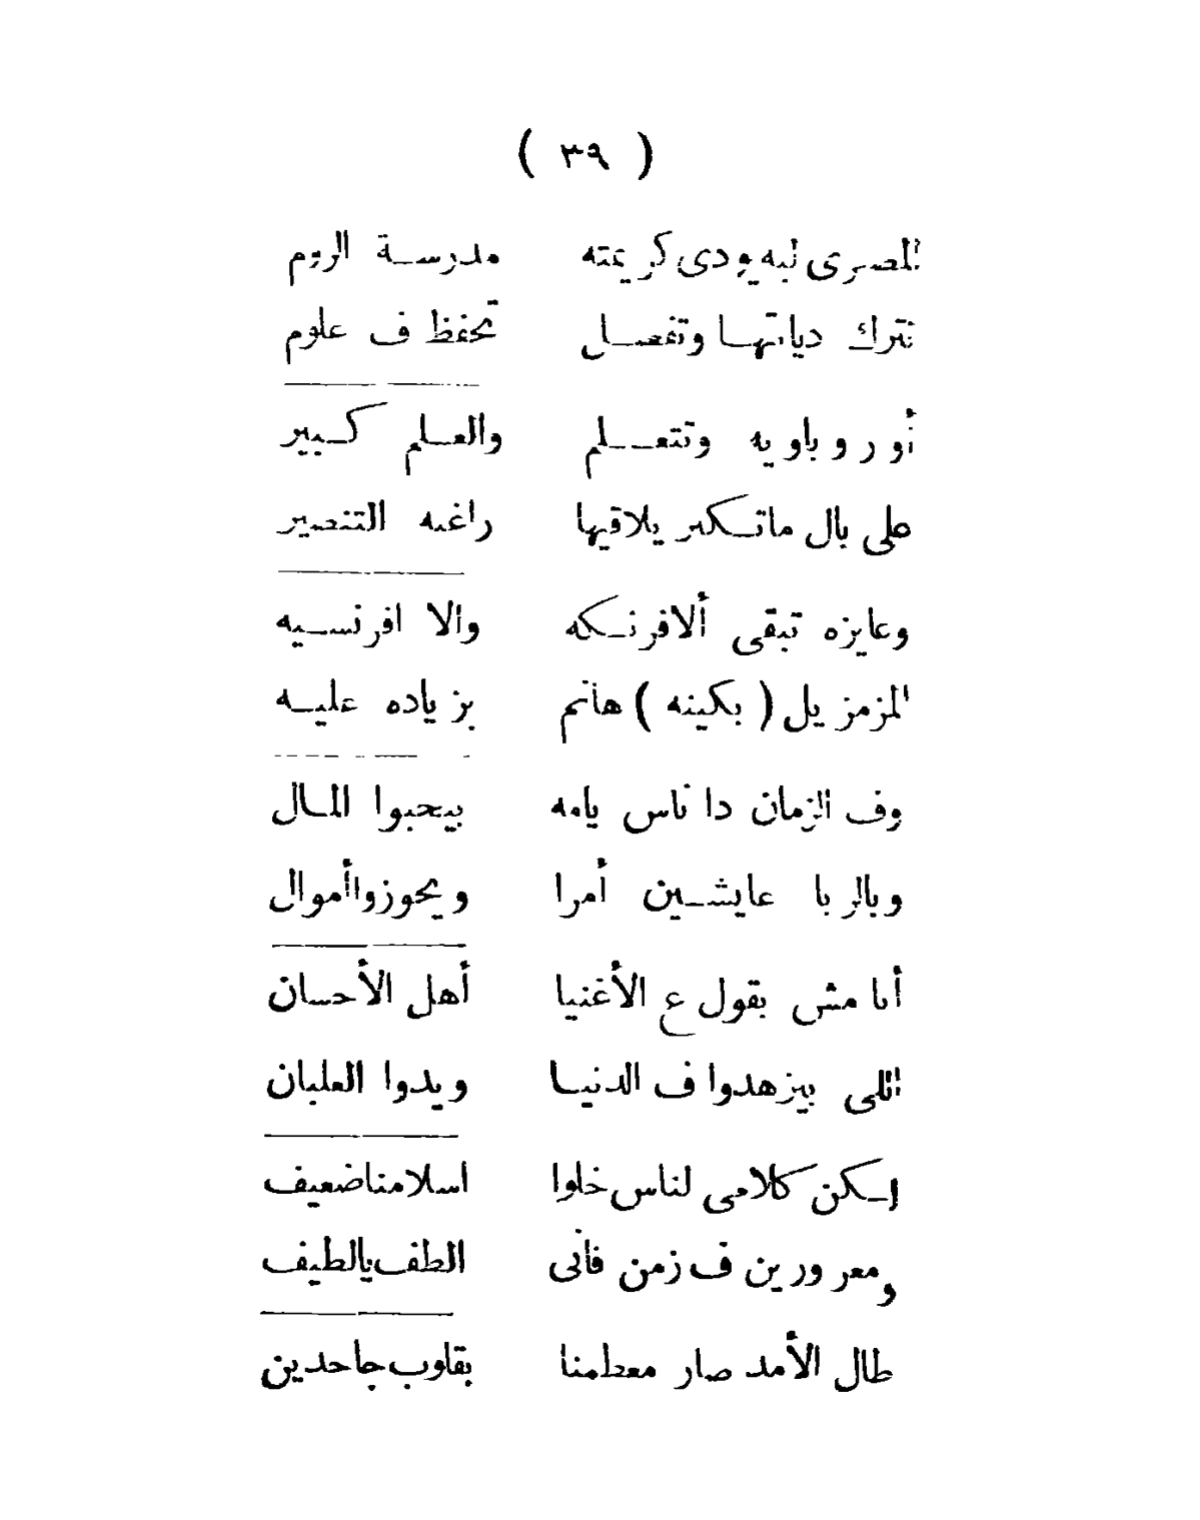 ( ٣٩ )
المصرى ليه يودى كريمته مدرسة الروم
تترك ديانتها وتفضل تحفظ ف علوم
أوروباويه وتتعلم والعلم كبير
على بال ماتكبر يلاقيها راغبه التنصير
وعايزه تبقى ألافرنكه والا افرنسيه
المزمزيل ( بكينه ) هانم بزياده عليه
وف الزمان دا ناس يامه بيحبوا المال
وبالربا عايشين أمرا ويحوزوا أموال
أنا مش بقول ع الأغنيا أهل الأحسان
اللى بيزهدوا ف الدنيا ويدوا الغلبان
لكن كلامى لناس خلوا اسلامنا ضعيف
ومغرورين ف زمن فانى الطف يالطيف
طال الأمد صار معظمنا بقلوب جاحدين